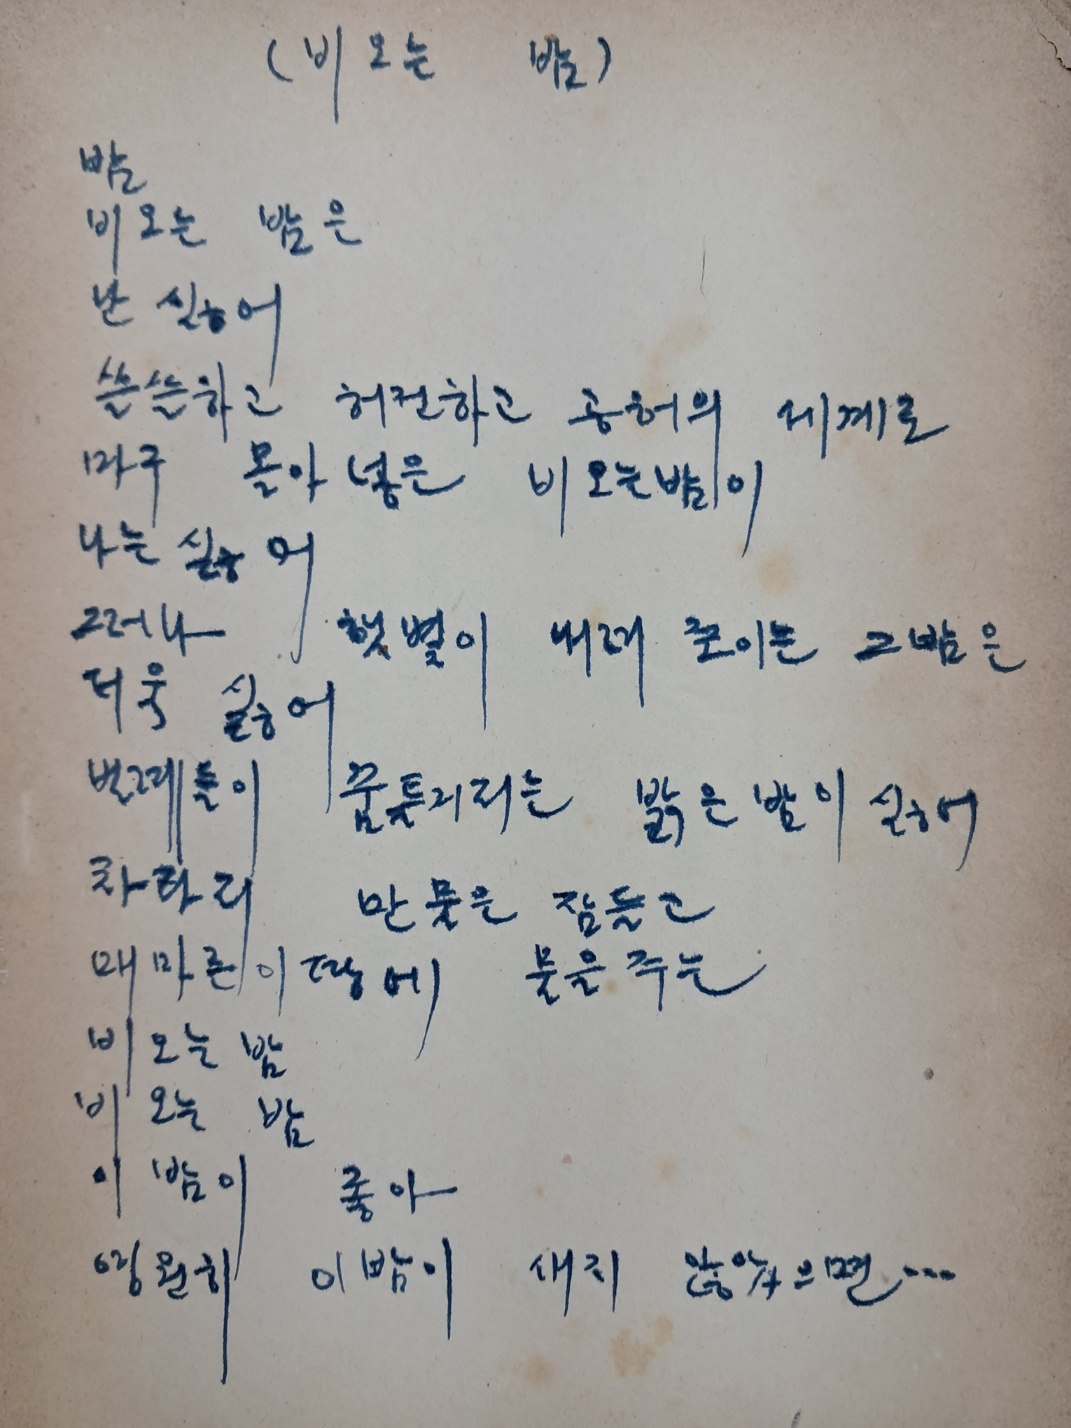 (비 오는 밤)
밤
비 오는 밤은
난 싫어
쓸쓸하고 허전하고 공허의 세계로
마구 몰아 넣은 비 오는밤이
나는 싫어
그러나 햇볕이 내려 쪼이는 그밤은
더욱 싫어
벌레들이 꿈틀거리는 밝은 밤이 싫어
차라리 만물은 잠들고
매마른 이 땅에 물을 주는
비 오는 밤
비 오는 밤
이 밤이 좋아
영원히 이밤이 새지 않았으면....